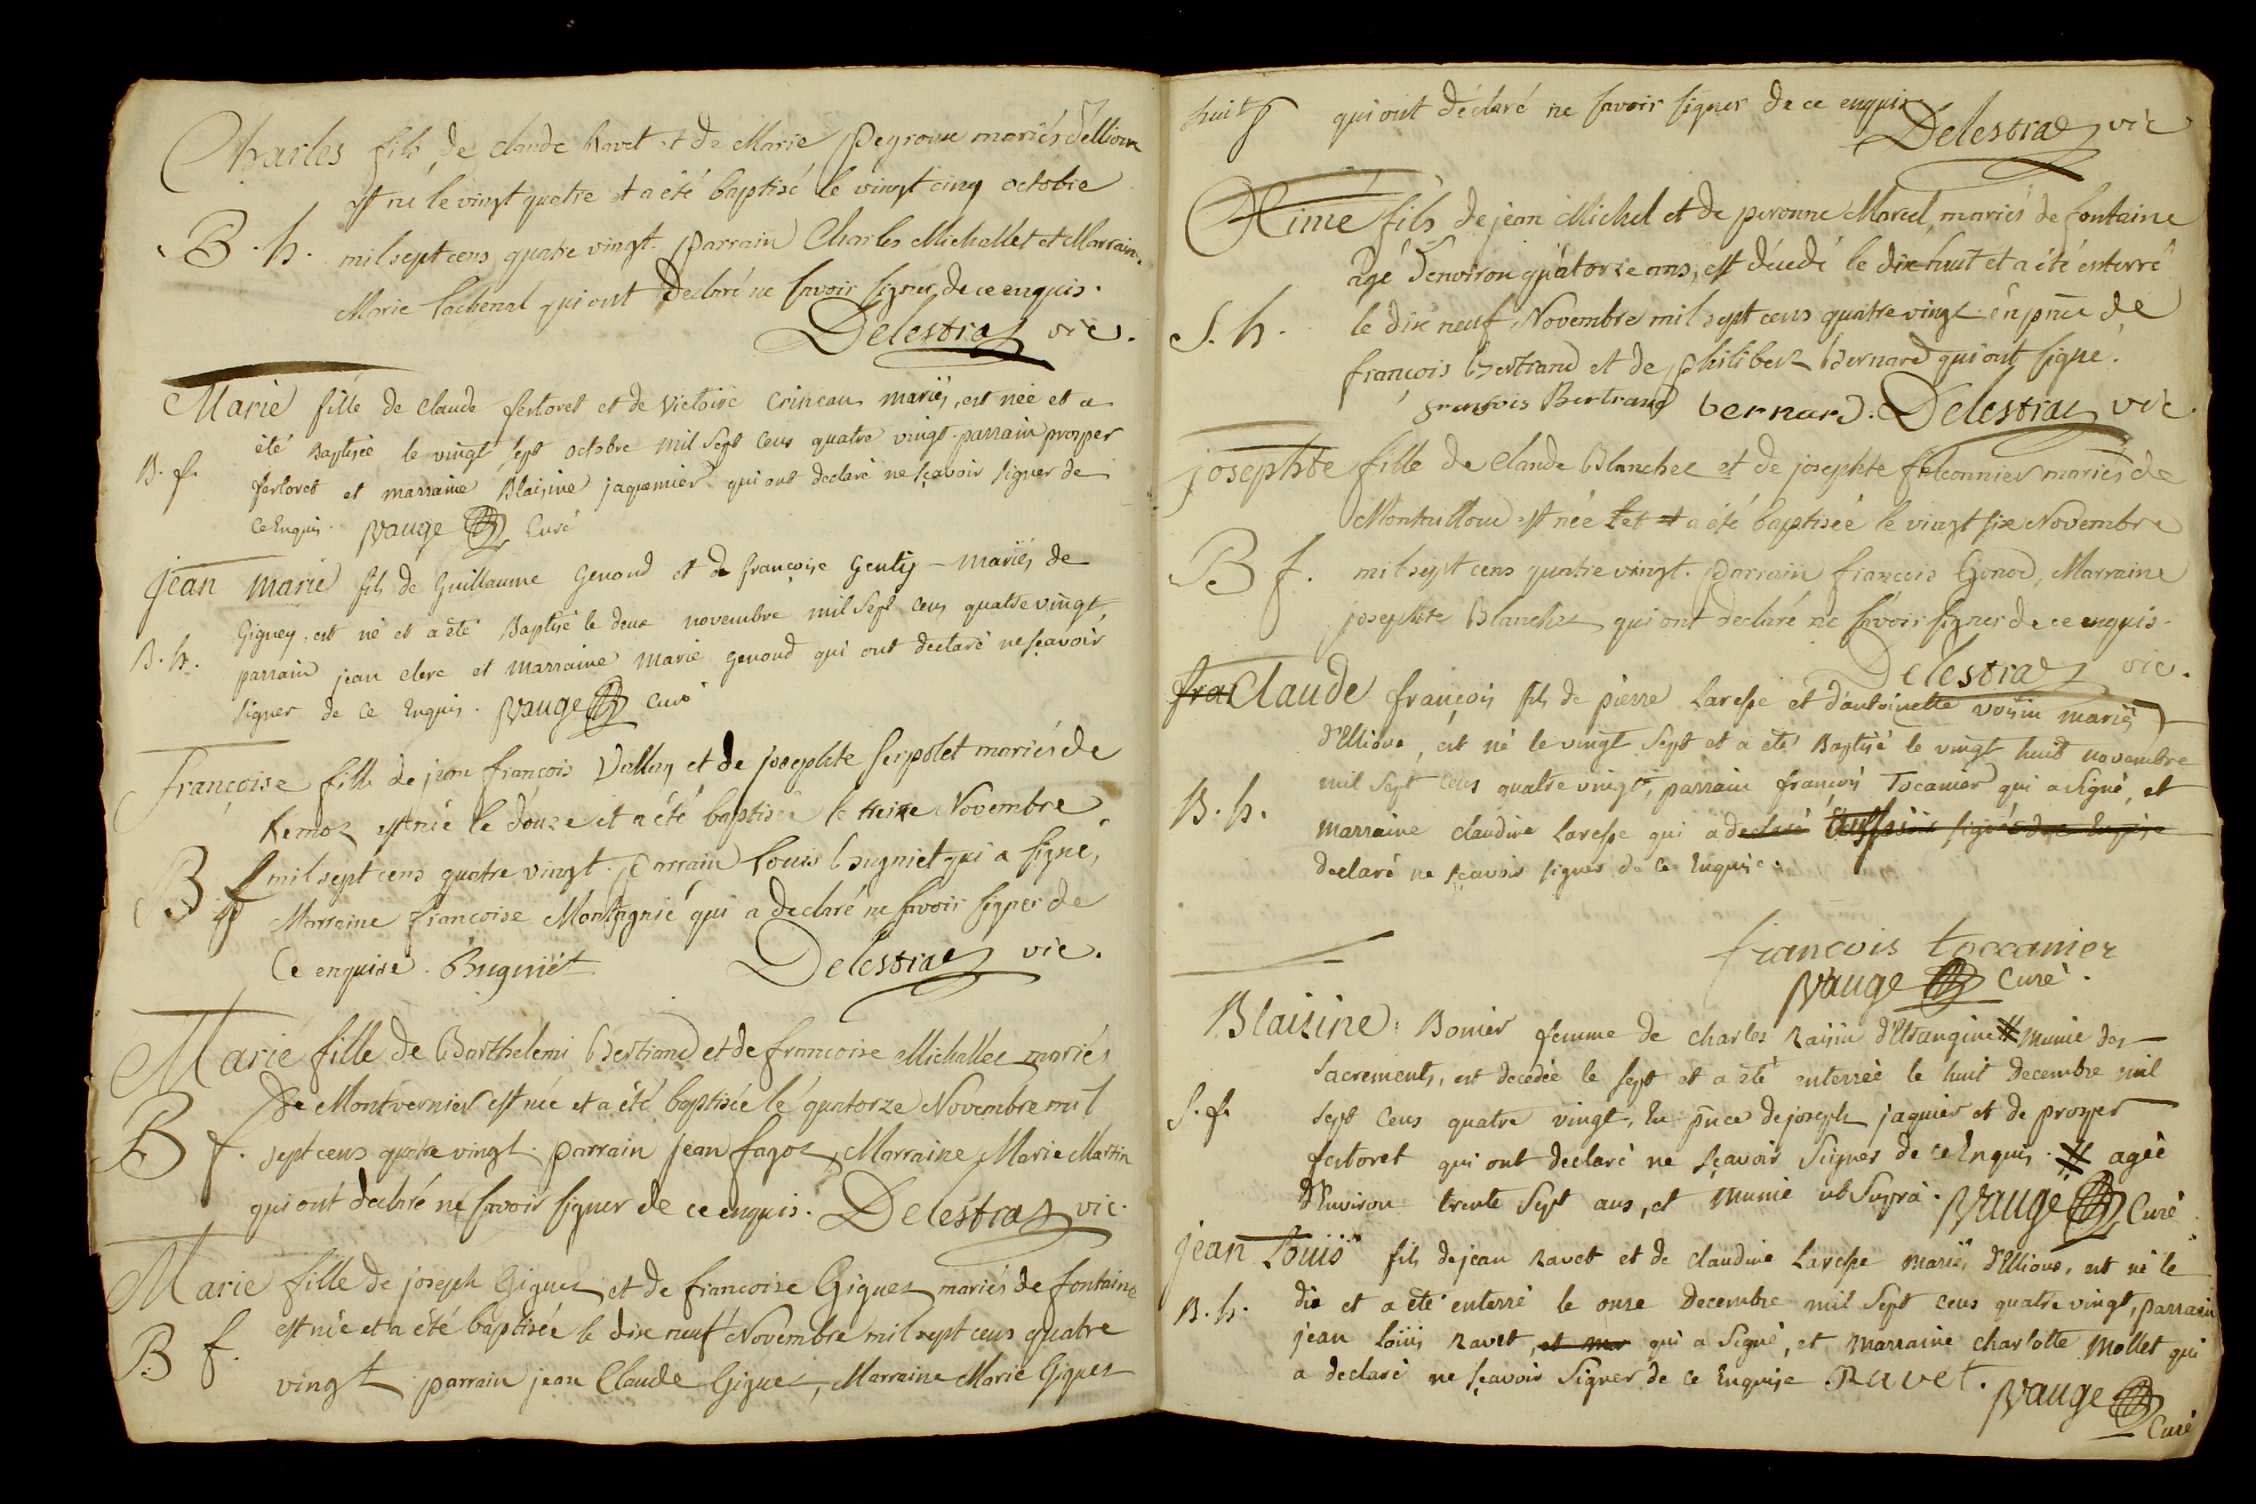 Charles fils de claude Ravet et de Marie Peyronne mariés d'Ellioun
est né le vingt quatre et a été baptisé le vingt cinq octobre
B. h. mil sept cens quatre vingt. parrain Charles Michallet et Marraine
Marie Lachenal qui ont declaré ne savoir signer de ce enquis.
Delestraz vic.
Marie fille de Claude fertoret et de Victoire Crineau mariés, est née et a
été Baptisée le vingt sept octobre mil sept cens quatre vingt. parrain prosper
B. f.
fertoret et marraine Blaisine jaquemier qui ont declaré ne sçavoir signer de
ce Enquis. Vauge Curé
jean Marie fils de Guillaume Genoud et de françoise Genty mariés de
Gigney, est né et a été Baptisé le deux novembre mil sept cens quatre vingt
B. h.
parrain jean clerc et marraine marie genoud qui ont declaré ne sçavoir
signer de ce Enquis. Vauge Curé
françoise fille de jean françois Vallay et de josephte serpolet mariés de
Remoz est née le douze et a été baptisée le treize Novembre
B f mil sept cens quatre vingt. parrain Louis bugniet qui a signé,
Marraine francoise Montagnié qui a declaré ne savoir signer de
Ce enquise. Bugniet Delestraz vic.
Marie fille de Barthélemi bertrand et de francoise Michallet mariés
De Montvernier est née et a été baptisée le quatorze Novembre mil
B f. sept cens quatre vingt. parrain jean fagoz, Marraine Marie Martin
qui ont declaré ne savoir signer de ce enquis. Delestraz vic.
Marie fille de joseph Giguez et de francoise Giguez mariés de fontaine
est née et a été baptisée le dix neuf Novembre mil sept cens quatre
B f.
vingt parrain jean Claude Giguez, Marraine Marie Giguez
huit qui ont déclaré ne savoir signer de ce enquis
Delestraz vic
Aimé fils de jean Michel et de peronne Marcel, mariés de fontaine
agé d'environ quatorze ans, est décédé le dix huit et a été enterré
S. h. le dix neuf Novembre mil sept cens quatre vingt. en pñce de
françois bertrand et de philibert bernard qui ont signé.
françois Bertrand bernard. Delestraz vic.
josephte fille de claude Blanchez et de josephte falconnier mariés de
Montailloud est née et a été baptisée le vingt six Novembre
B f. mil sept cens quatre vingt. parrain francois Genod, Marraine
josephte Blanchez qui ont declaré ne savoir signer de ce enquis.
Delestraz vic.
fra Claude françois fils de pierre Laresse et d'antoinette voisin mariés
d'Ellioux, est né le vingt sept et a été Baptisé le vingt huit novembre
B. h. mil sept cens quatre vingt, parrain françois Tocanier qui a signé, et
marraine claudine Laresse qui a declaré
declaré ne sçavoir signer de ce Enquise.
francois toccanier
Vauge Curé.
Blaisine Bonier femme de charles Raisin d'Etrangine # munie des
sacrements, est decedée le sept et a été enterrée le huit decembre mil
S. f. sept cens quatre vingt, En pñce de joseph jaquier et de prosper
fertoret qui ont declaré ne sçavoir signer de ce Enquis. # agée
d'Environ trente sept ans, et munie ut suprà. Vauge Curé
jean Louis fils de jean Ravet et de claudine Laresse mariés d'Ellioux, est né le
B. h. dix et a été enterré le onze decembre mil sept cens quatre vingt, parrain
jean Louis Ravet, et mar qui a signé, et marraine charlotte Mollet qui
a declaré ne sçavoir signer de ce Enquise Ravet. Vauge
Curé